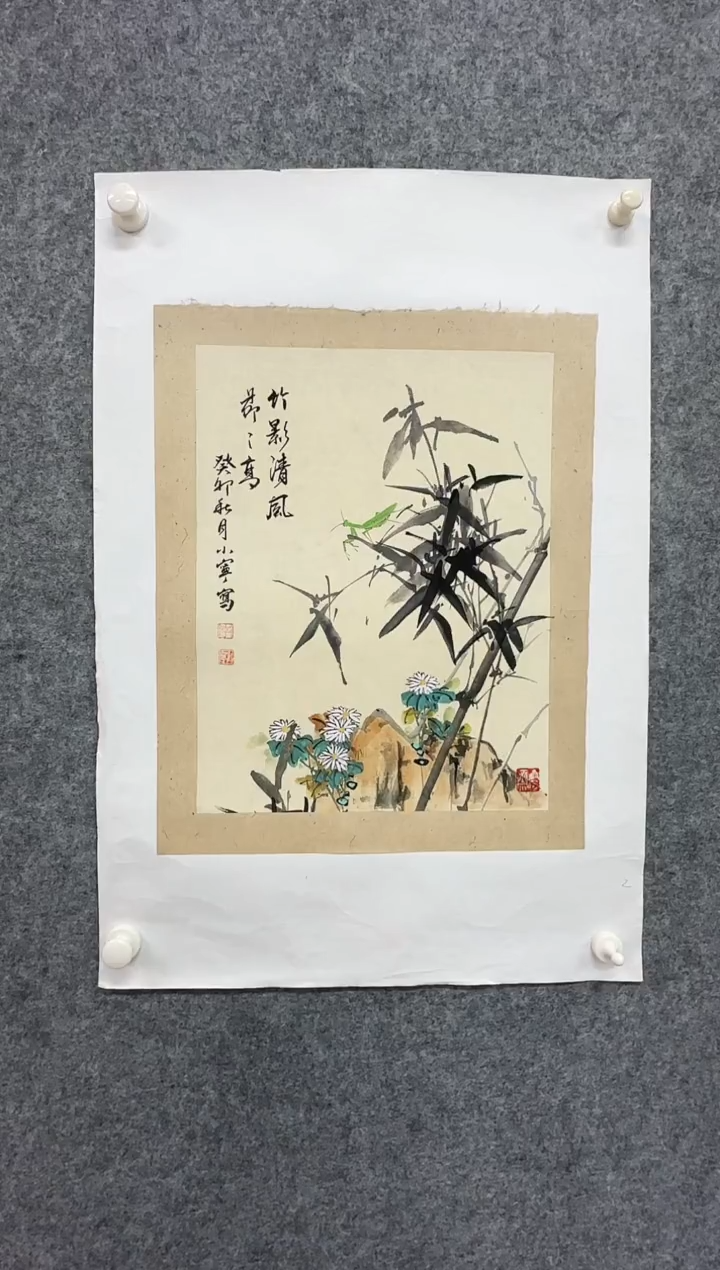 竹影清風
節〻高
癸卯秋月小寧寫